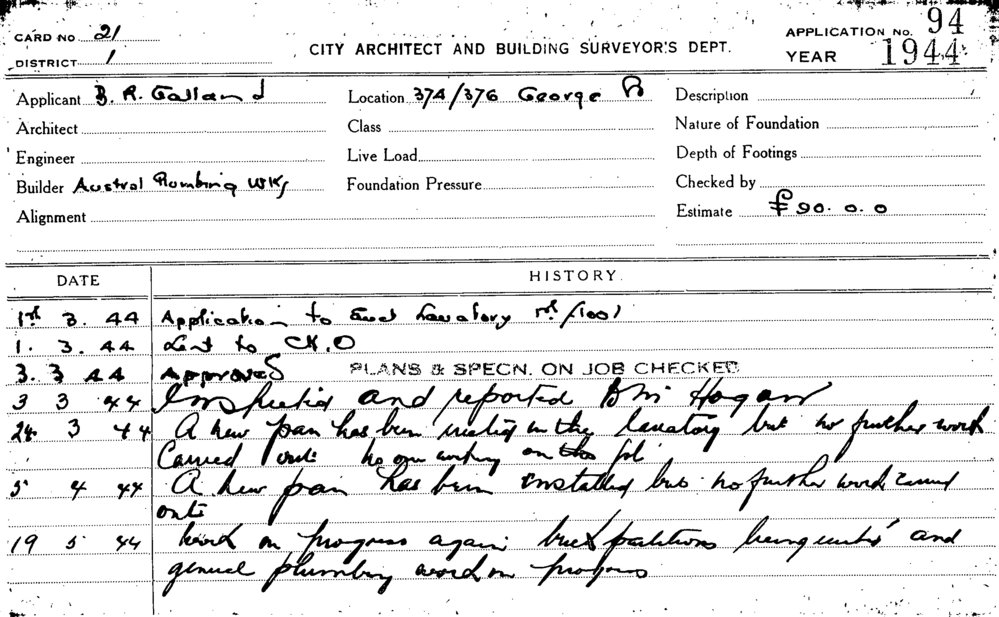 CARD NO 21
DISTRICT 1
CITY ARCHITECT AND BUILDING SURVEYOR'S DEPT.
APPLICATION NO. 94
YEAR 1944
Applicant B. R. Galland
Location 374/376 George
Description
Architect
Class
Nature of Foundation
Engineer
Live Load
Depth of Footings
Builder Austral Plumbing Wks
Foundation Pressure
Checked by
Alignment
Estimate £90. 0. 0
DATE
HISTORY.
1st 3. 44 Application to Erect Lavatory
1. 3. 44 Sent to CK.O
3. 3 44 Approved PLANS & SPECN. ON JOB CHECKED
3 3 44 Inspected and reported Hogan
24. 3 44 A new pan has been in the lavatory but no further work
Carried out. No one working on the job
5 4 44 A new pan has been installed but no further work carried
out
19 5 44 Work in progress again brick partitions being erected and
general plumbing work in progress